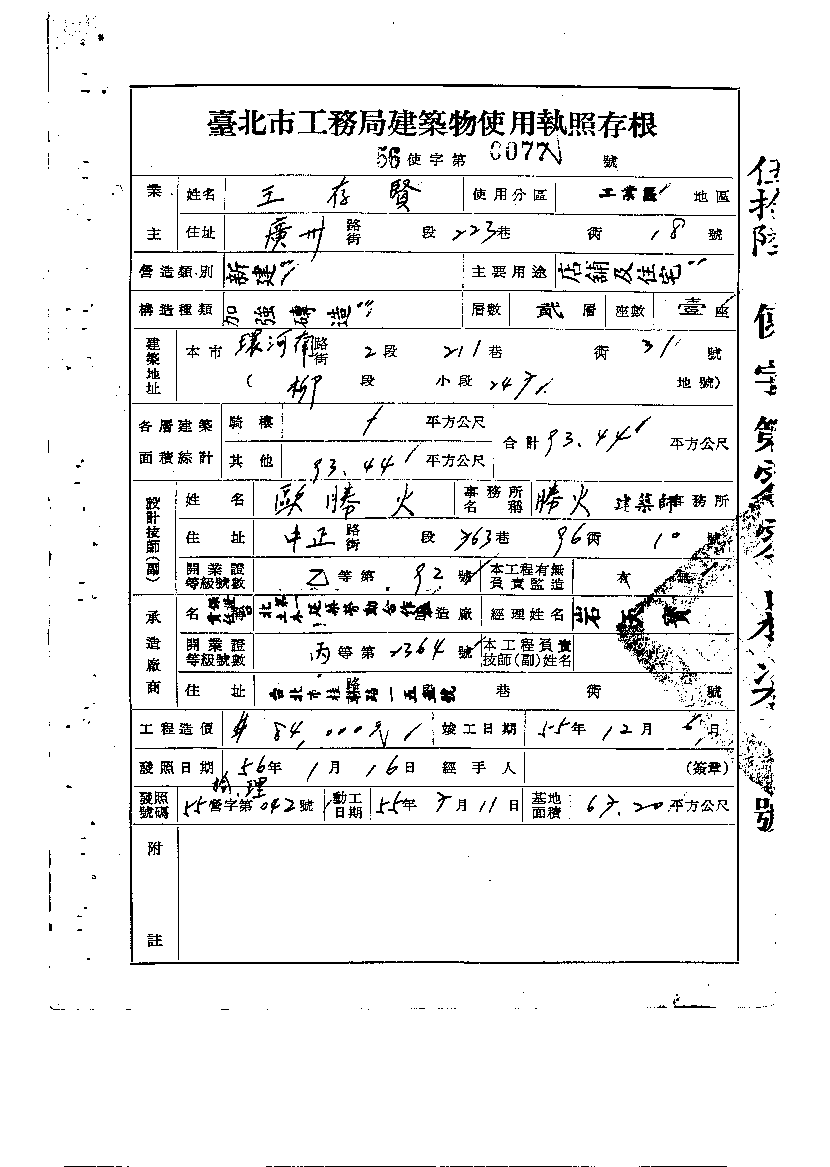 臺北市工務局建築物使用執照存根
56使字第 0077 號
業主 姓名 王存賢 使用分區 工業區 地區
住址 廣州 路街 段 223巷 衖 18號
營造類別 新建 主要用途 店舖及住宅
構造種類 加強磚造 層數 貳層 座數 壹座
建築地址 本市 環河南路街 2段 211巷 衖 31號
( 柳 段 小段 地號)
各層建築面積綜計 騎樓 平方公尺 合計 93.44 平方公尺
其他 93.44 平方公尺
設計技師(副) 姓名 歐勝火 事務所名稱 勝火建築師事務所
住址 中正路街 段 263巷 96衖 10號
開業證等級號數 乙等第 92號 本工程有無負責監造 有 無
承造廠商 名 營造廠 經理姓名
開業證等級號數 丙等第 2364號 本工程負責技師(副)姓名
住址 台北市桂林路一五 號 巷 衖 號
工程造價 $84,000元 竣工日期 55年12月6日
發照日期 56年1月16日 經手人 (簽章)
發照號碼 55營字第042號 動工日期 55年 月11日 基地面積 平方公尺
附註
伍拾陸 使字第 號